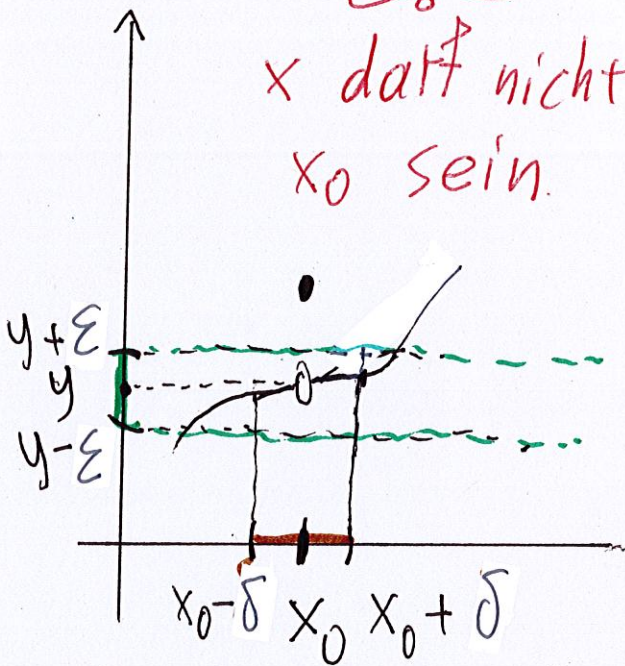 x darf nicht
x₀ sein.
y+ε
y
y-ε
x₀-δ x₀ x₀+δ